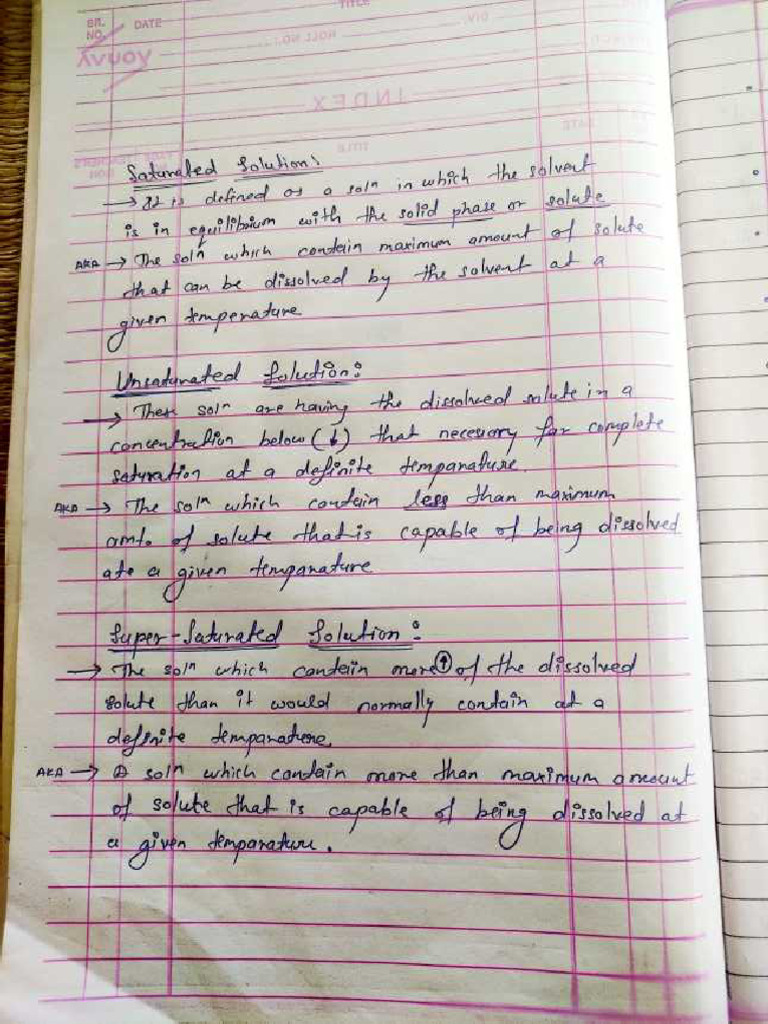 TITLE
SR. NO.
DATE
DIV.
ROLL NO.
INDEX
DATE
TITLE
Saturated Solution:
→ It is defined as a soln in which the solvent
is in equilibrium with the solid phase or solute
AKA → The soln which contain maximum amount of solute
that can be dissolved by the solvent at a
given temperature
Unsaturated Solution:
→ These soln are having the dissolved solute in a
concentration below (↓) that necessory for complete
saturation at a definite temparature.
AKA → The soln which contain less than maximum
amt. of solute that is capable of being dissolved
ate a given temparature
Super-Saturated Solution:
→ The soln which contain more ↑ of the dissolved
solute than it would normally contain at a
definite temparature.
AKA → A soln which contain more than maximum amount
of solute that is capable of being dissolved at
a given temparature.